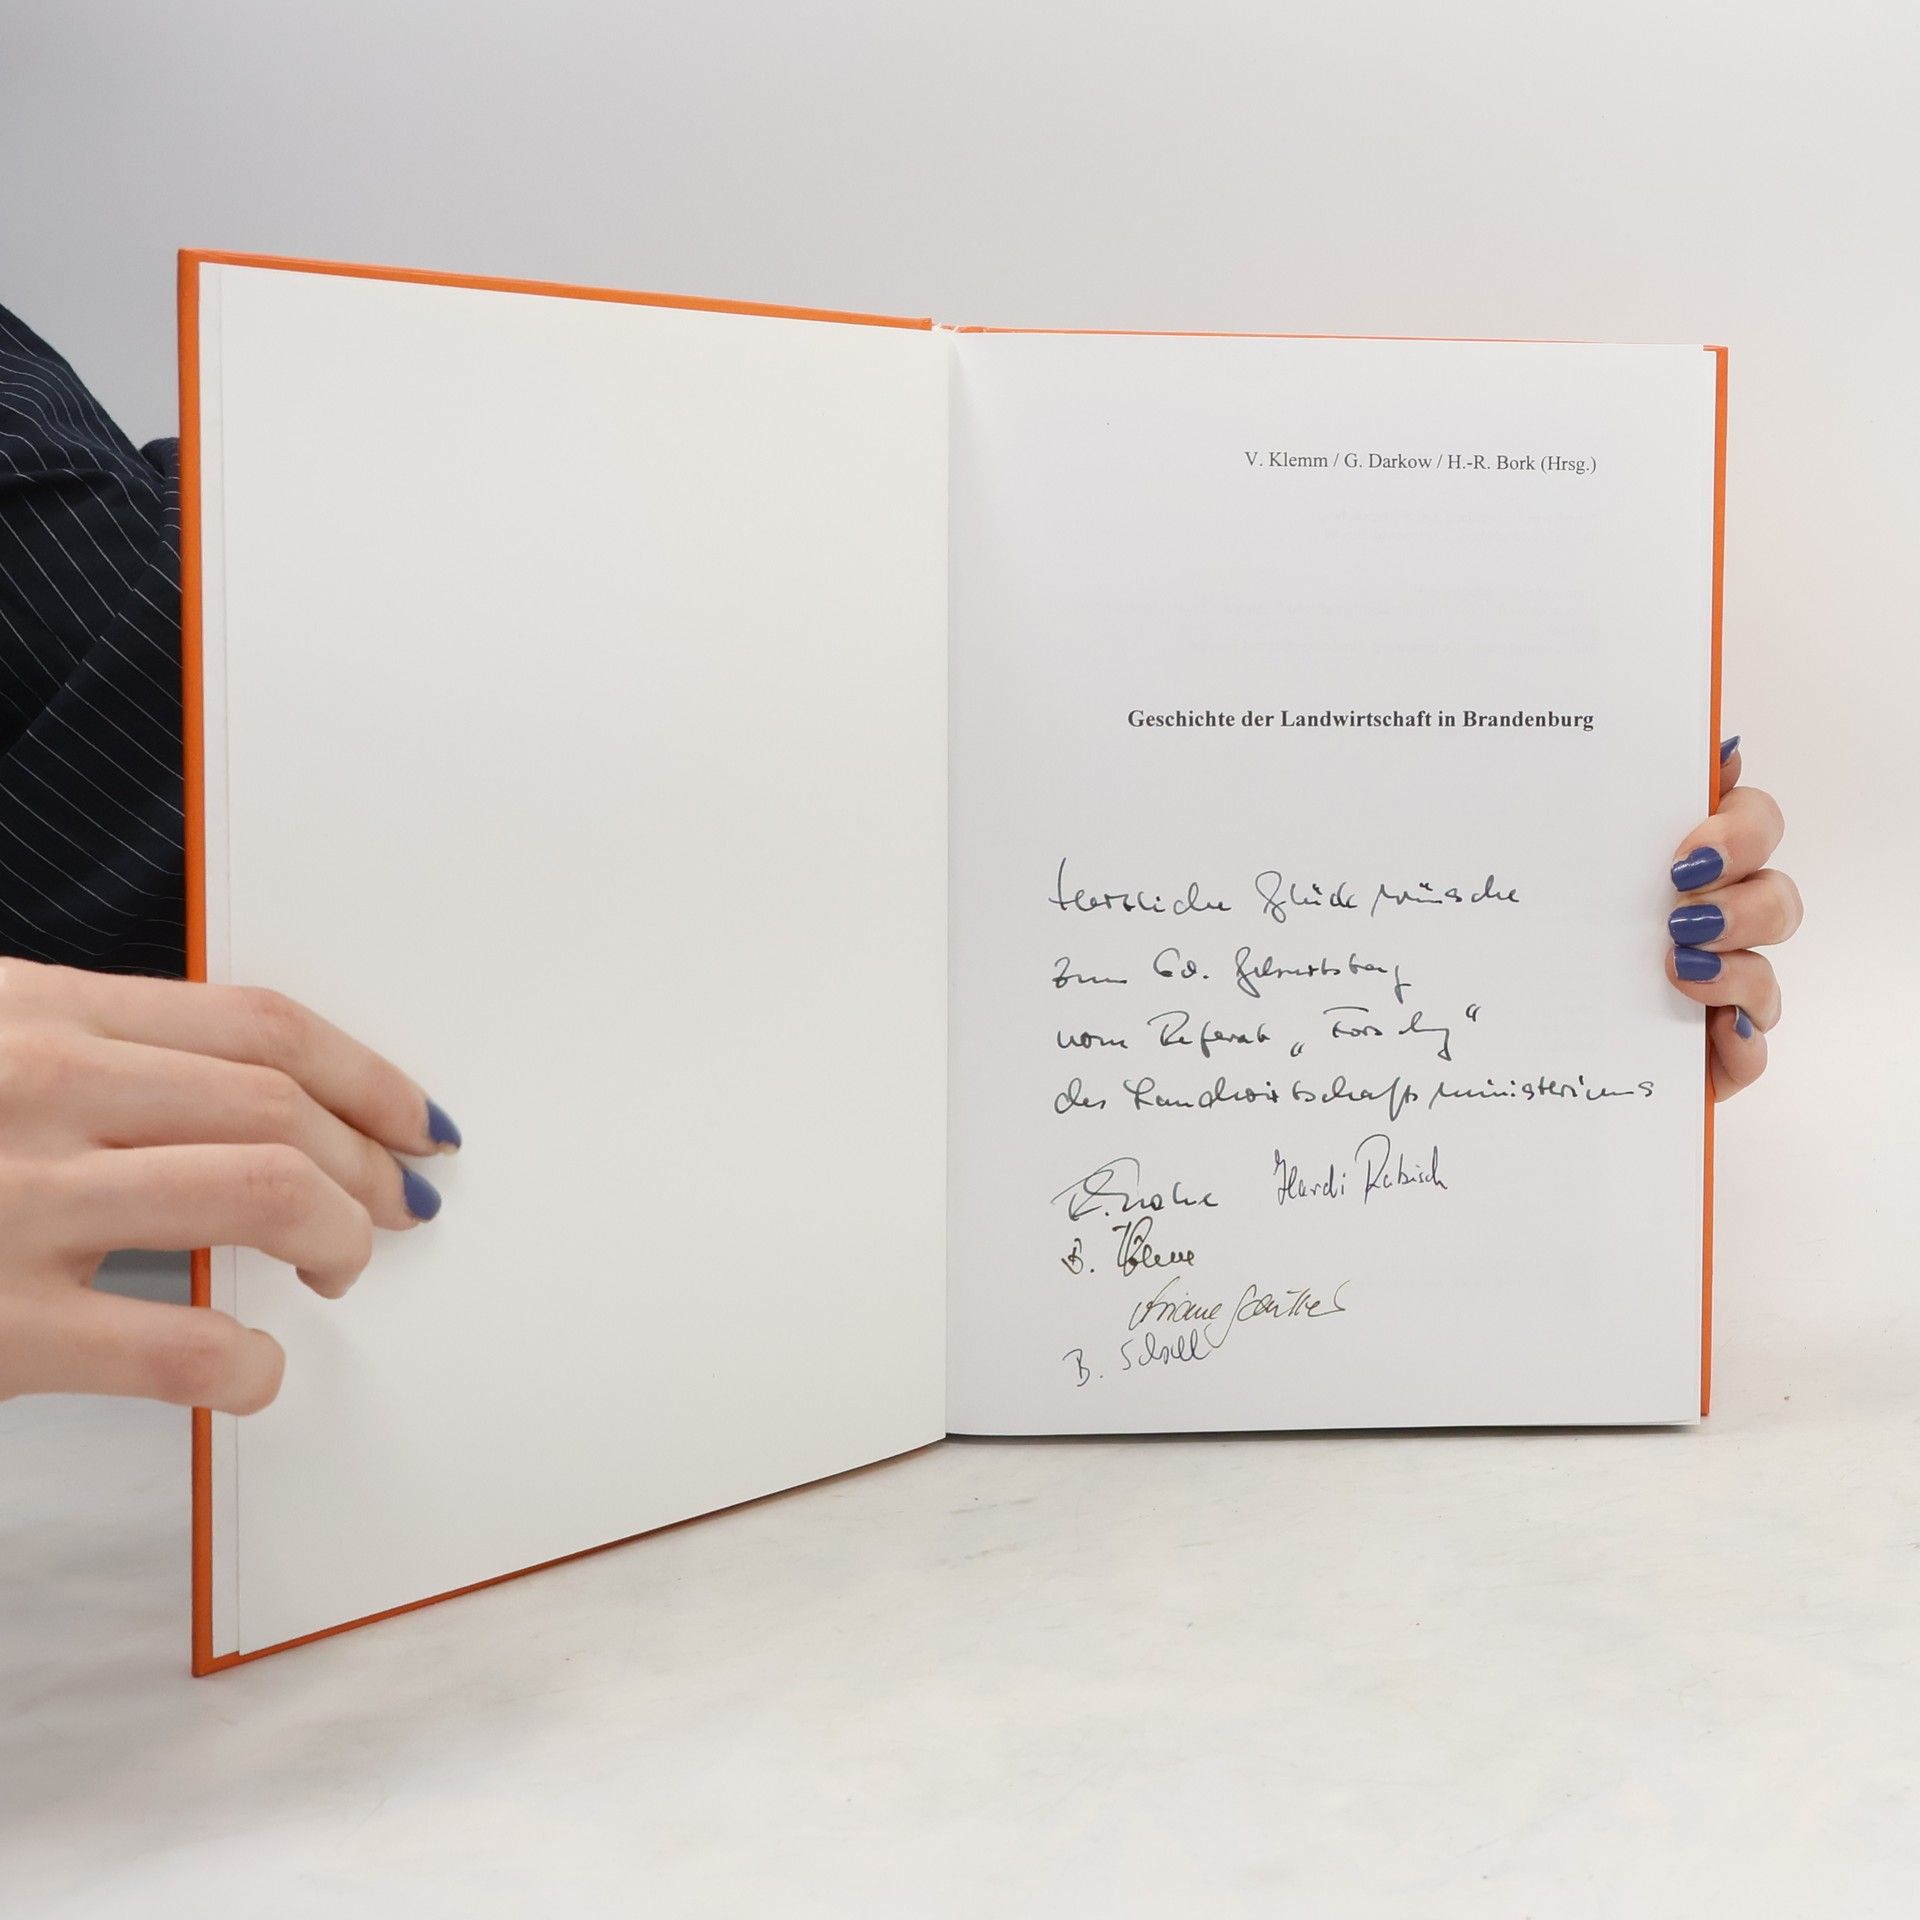 V. Klemm / G. Darkow / H.-R. Bork (Hrsg.)
Geschichte der Landwirtschaft in Brandenburg
Herzliche Glückwünsche
zum 60. Geburtstag
vom Referat „Forschg“
des Landwirtschaftsministeriums
Hardi Rabisch
B.
Ariane
B. Scholl